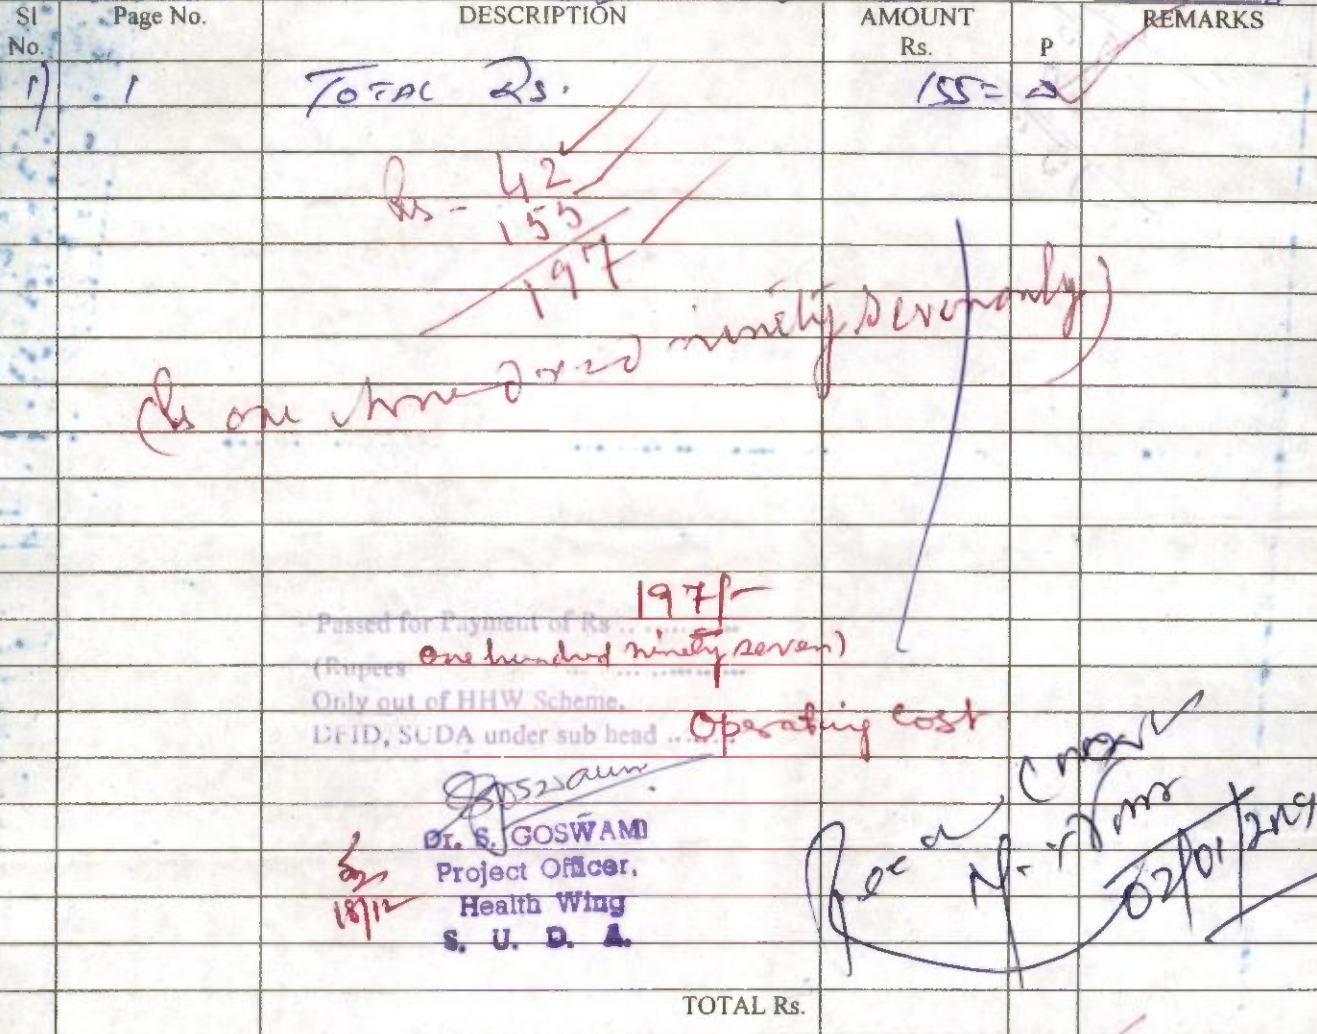 Sl No. Page No. DESCRIPTION AMOUNT Rs. P REMARKS
1) 1 TOTAL Rs. 155=
Rs - 42
155
197
(Rs one hundred ninety seven only)
Passed for Payment of Rs .. 197/-
(Rupees one hundred ninety seven)
Only out of HHW Scheme.
DFID, SUDA under sub head ...... Operating cost
Dr. S. GOSWAMI
Project Officer,
18/12
Health Wing
S. U. D. A.
02/01/
TOTAL Rs.